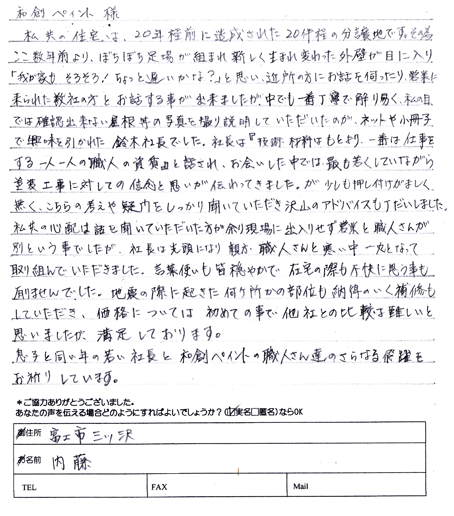 和創ペイント 様
私共の住宅は、20年程前に造成された20件程の分譲地です。その為
ここ数年前より、ぼちぼち足場が組まれ新しく生まれ変わった外壁が目に入り
「我が家もそろそろ！ちょっと遅いかな？」と思い、近所の方にお話を伺ったり、営業に
来られた数社の方とお話する事が出来ましたが、中でも一番丁寧で解り易く、私の目
では確認出来ない屋根等の写真を撮り説明していただいたのが、ネットや小冊子
で興味を引かれた鈴木社長でした。社長は『技術・材料はもとより、一番は仕事を
する一人一人の職人の資質』と話され、お会いした中では最も若くしていながら
塗装工事に対しての信念と思いが伝わってきました。が少しも押し付けがましく
無く、こちらの考えや疑問をしっかり聞いていただき沢山のアドバイスも丁だいしました。
私共の心配は話を聞いていただいた方が余り現場に出入りせず営業と職人さんが
別という事でしたが、社長は先頭になり親方、職人さんと暑い中一丸となって
取り組んでいただきました。言葉使いも皆穏やかで在宅の際も不快に思う事も
有ませんでした。地震の際に起きた何ヶ所かの部位も納得のいく補修も
していただき、価格については初めての事で他社との比較は難しいと
思いましたが、満足しております。
息子と同い年の若い社長と和創ペイントの職人さん達のさらなる飛躍を
お祈りしています。
*ご協力ありがとうございました。
あなたの声を伝える場合どのようにすればよいでしょうか？(☑実名□匿名)ならOK
ご住所 富士市三ツ沢
お名前 内藤
TEL FAX Mail